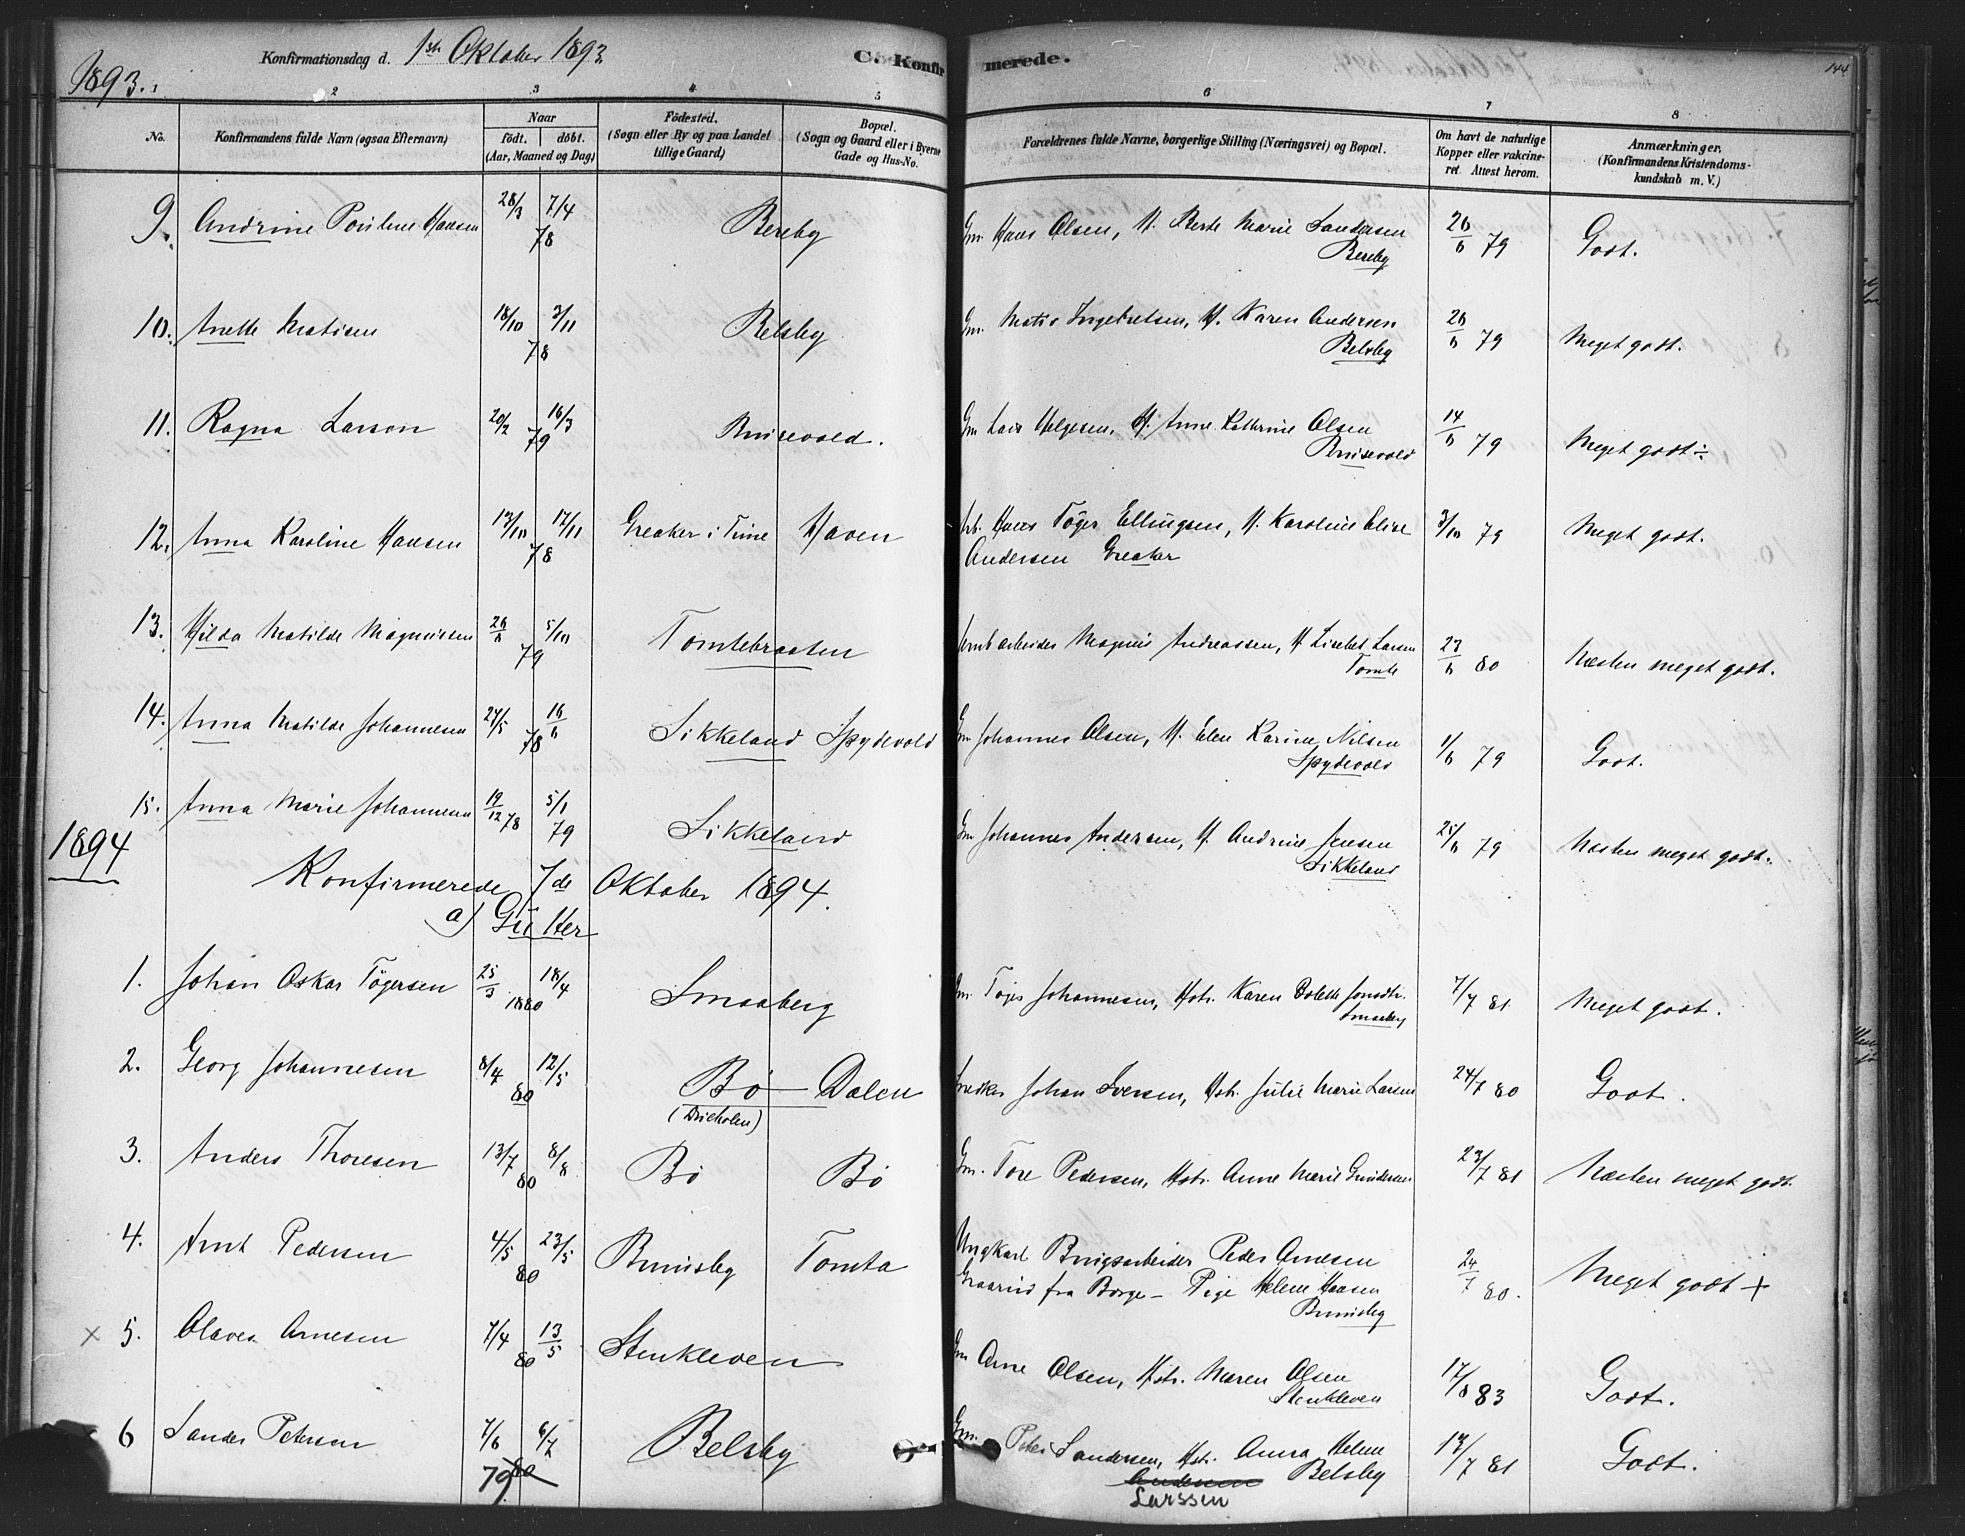 1893.
Konfirmationsdag d. 1ste Oktober 1893
C. Konfirmerede.
144
1 2 3 4 5 6 7 8
No.
Konfirmandens fulde Navn (ogsaa Efternavn)
Naar
født. døbt.
(Aar, Maaned og Dag)
Fødested.
(Sogn eller By og paa Landet
tillige Gaard)
Bopæl.
(Sogn og Gaard eller i Byerne
Gade og Hus-No.
Forældrenes fulde Navne, borgerlige Stilling (Næringsvei) og Bopæl.
Om havt de naturlige
Kopper eller vakcine-
ret. Attest herom.
Anmærkninger.
(Konfirmandens Kristendoms-
kundskab m. V.)
9. Andrine Pouline Hansen 28/3 7/4 78 Bereby Gm. Hans Olsen, H. Berte Marie Sandersen Bereby 26/6 79 Godt.
10. Anette Matisen 18/10 3/11 78 Belsby Gm. Matis Ingebretsen, H. Karen Andersen Belsby 26/6 79 Meget godt.
11. Ragna Larsen 20/2 16/3 79 Brusevold. Gm Lars Helgesen, H. Anne Kathrine Olsen Brusevold 14/6 79 Meget godt ÷
12. Anna Karoline Hansen 13/10 17/11 78 Greaker i Tune Haven Arb. Hans Töger Ellingsen, H. Karoline Elise
Andersen Greaker 3/10 79 Meget godt.
13. Hilda Matilde Magnussen 26/6 5/10 79 Tomtebraaten Magnus Andreassen, H Lisebet Larsen Tomte 23/6 80 Næsten meget godt.
14. Anna Matilde Johannesen 24/5 16/6 78 Likkeland Spydevold Gm Johannes Olsen, H. Elen Karine Nilsen Spydevold 1/6 79 Godt.
15. Anna Marie Johannesen 19/12 78 5/1 79 Likkeland Gm Johannes Andersen, H. Andrine Jensen Likkeland 25/6 79 Næsten meget godt.
1894
Konfirmerede 7de Oktober 1894.
a) Gutter
1. Johan Oskar Tögersen 25/3 18/4 1880 Smaaberg Gm. Töger Johannesen, Hstr. Karen Bolette Jonsdtr. Smaaberg 7/7 81 Meget godt.
2. Georg Johannesen 8/4 12/5 80 Bö Dalen Snedker Johan Iversen, Hstr. Julie Marie Larsen 24/7 80 Godt.
3. Anders Thoresen 13/7 8/8 80 Bö Bö Gm. Tore Pedersen, Hstr. Anne Marie Gundersen 23/7 81 Næsten meget godt.
4. Arnt Pedersen 4/5 23/5 80 Brunsby Tomta Ungkarl Brugsarbeider Peder Arnesen
Graarud fra Borge – Pige Helene Hansen
Brunsby 24/7 80. Meget godt +
× 5. Olaves Arnesen 7/4 13/5 80 Stenkleven Gm Arne Olsen, Hstr. Maren Olsen Stenkleven 17/8 83 Godt.
6 Sander Petersen 7/6 6/7 80 79 Belsby Gm. Peter Sandersen, Hstr. Anna Helene
Andersen Belsby
Larssen 13/7 81 Godt.